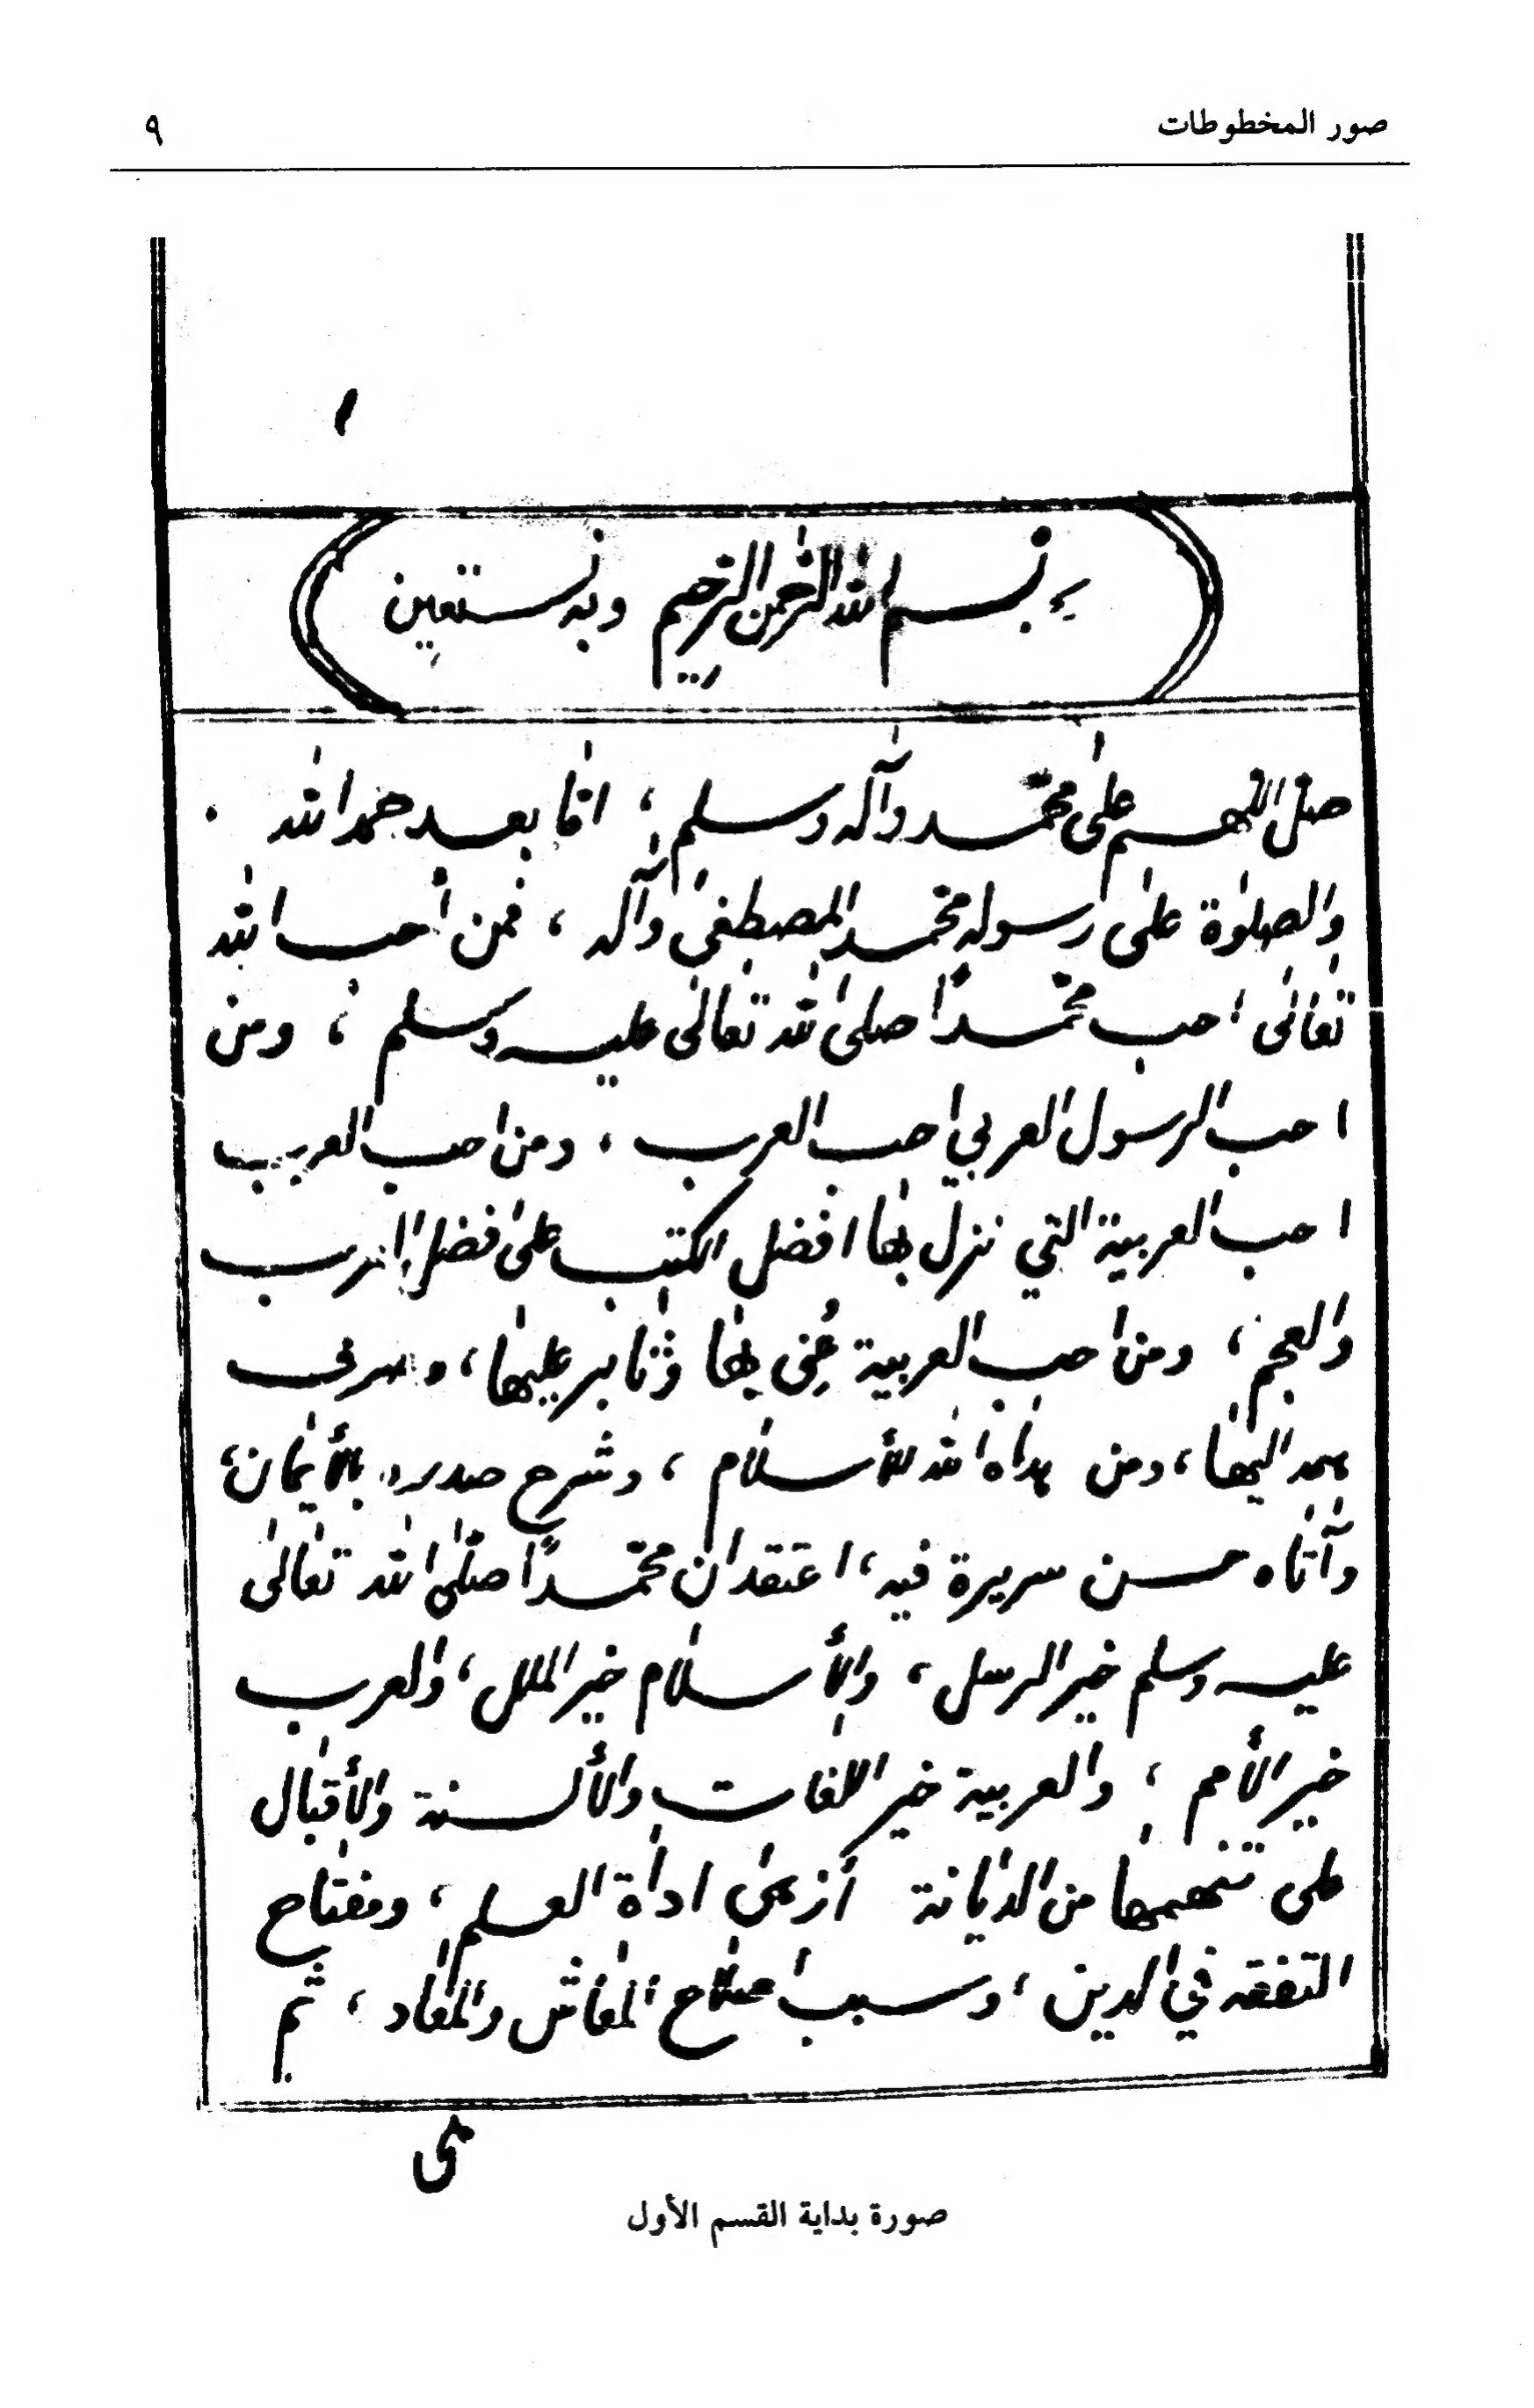 صور المخطوطات
٩
١
بسم الله الرحمن الرحيم وبه نستعين
صل اللهم على محمد وآله وسلم ، اما بعد حمد الله
والصلوة على رسوله محمد المصطفى وآله ، فمن أحب الله
تعالى احب محمدًا صلى الله تعالى عليه وسلم ، ومن
احب الرسول العربي احب العرب ، ومن احب العرب
احب العربية التي نزل بها افضل الكتب على افضل العرب
والعجم ، ومن احب العربية عُني بها وثابر عليها ، وصرف
همه اليها ، ومن هداه الله للأسلام ، وشرح صدره بالأيمان ،
وآتاه حسن سريرة فيه ، اعتقد ان محمدًا صلى الله تعالى
عليه وسلم خير الرسل ، والأسلام خير الملل ، والعرب
خير الأمم ، والعربية خير اللغات والألسنة والأقبال
على تفهمها من الديانة أزهى اداة العلم ، ومفتاح
التفقه في الدين ، وسبب اصلاح المعاش والمعاد ، ثم
هى
صورة بداية القسم الأول